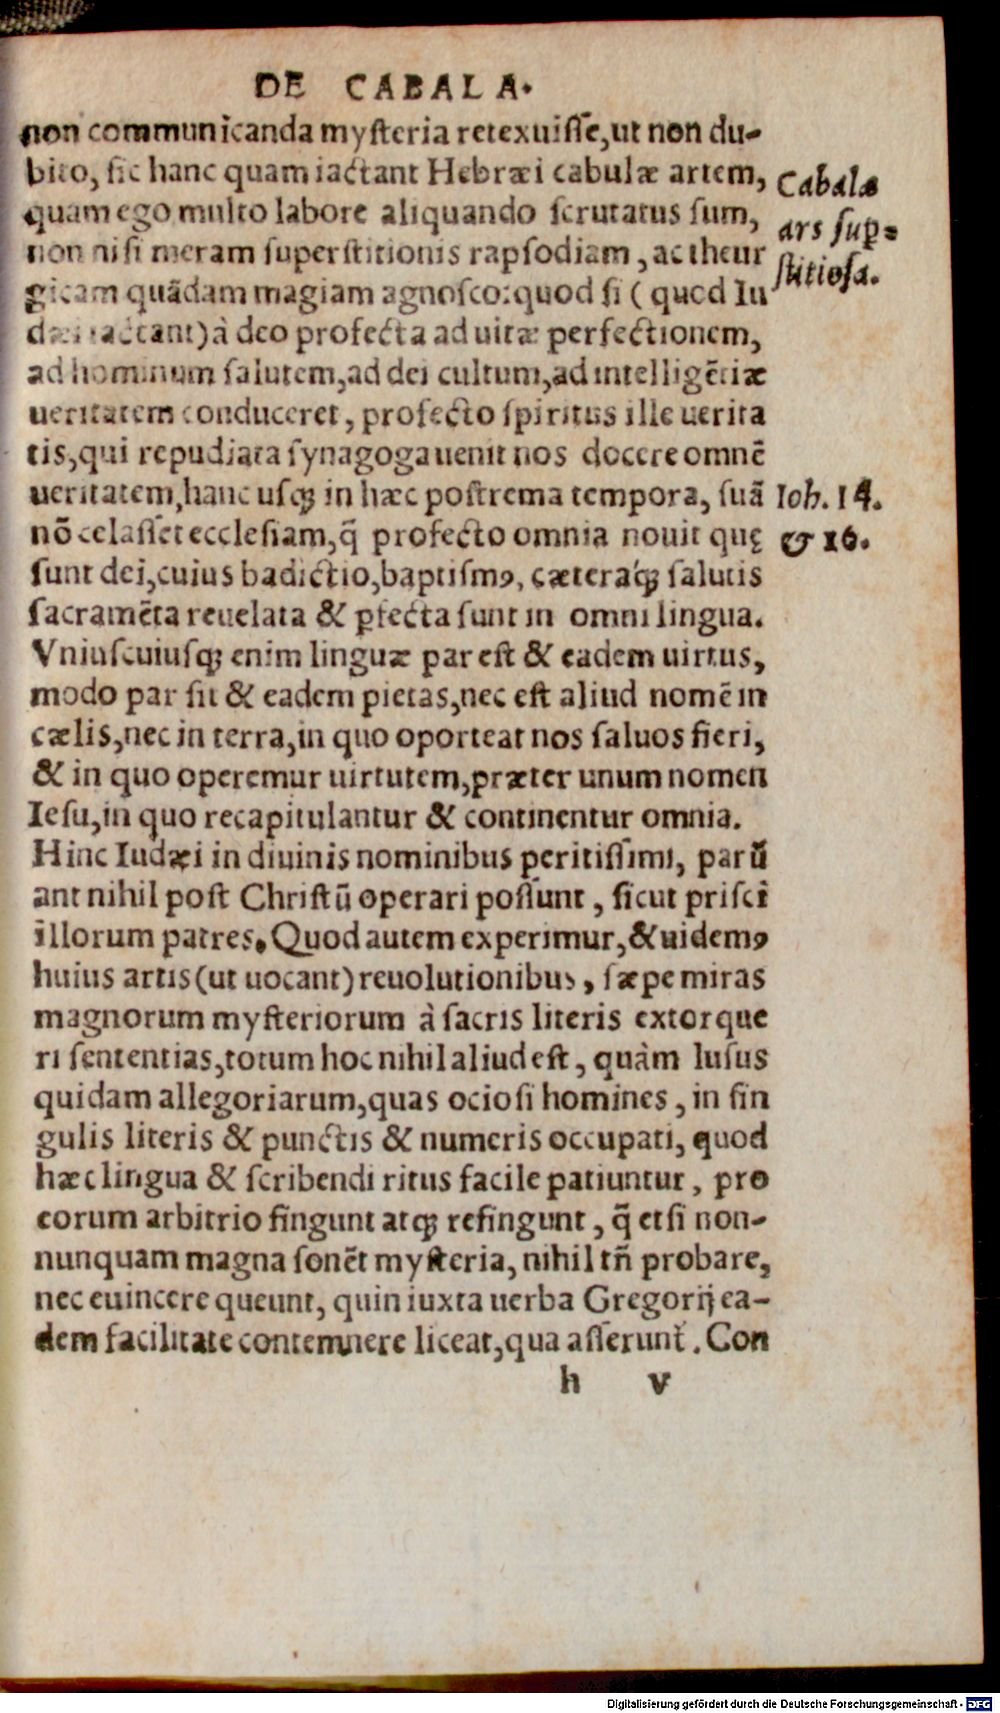 DE CABALA.
non communicanda mysteria retexuisse, ut non du-
bito, sic hanc quam iactant Hebræi cabulæ artem,
quam ego multo labore aliquando scrutatus sum,
non nisi meram superstitionis rapsodiam, ac theur
gicam quãdam magiam agnosco: quod si (quod Iu
dæi iactant) à deo profecta ad uitæ perfectionem,
ad hominum salutem, ad dei cultum, ad intelligẽtiæ
ueritatem conduceret, profecto spiritus ille uerita
tis, qui repudiata synagoga uenit nos docere omnẽ
ueritatem, hanc usqꝫ in hæc postrema tempora, suã
nõ celasset ecclesiam, q̃ profecto omnia nouit quę
sunt dei, cuius bñdictio, baptismꝰ, cæteraqꝫ salutis
sacramẽta reuelata & ꝑfecta sunt in omni lingua.
Vniuscuiusqꝫ enim linguæ par est & eadem uirtus,
modo par sit & eadem pietas, nec est aliud nomẽ in
cælis, nec in terra, in quo oporteat nos saluos fieri,
& in quo operemur uirtutem, præter unum nomen
Iesu, in quo recapitulantur & continentur omnia.
Hinc Iudæi in diuinis nominibus peritissimi, parũ
ant nihil post Christũ operari possunt, sicut prisci
illorum patres. Quod autem experimur, & uidemꝰ
huius artis (ut uocant) reuolutionibus, sæpe miras
magnorum mysteriorum à sacris literis extorque
ri sententias, totum hoc nihil aliud est, quàm lusus
quidam allegoriarum, quas ociosi homines, in sin
gulis literis & punctis & numeris occupati, quod
hæc lingua & scribendi ritus facile patiuntur, pro
eorum arbitrio fingunt atqꝫ refingunt, q̃ etsi non-
nunquam magna sonẽt mysteria, nihil tñ probare,
nec euincere queunt, quin iuxta uerba Gregorij ea-
dem facilitate contemnere liceat, qua asserunt̃. Con
h v
Cabalæ
ars suꝑ-
stitiosa.
Ioh. 14.
& 16.
Digitalisierung gefördert durch die Deutsche Forschungsgemeinschaft - DFG